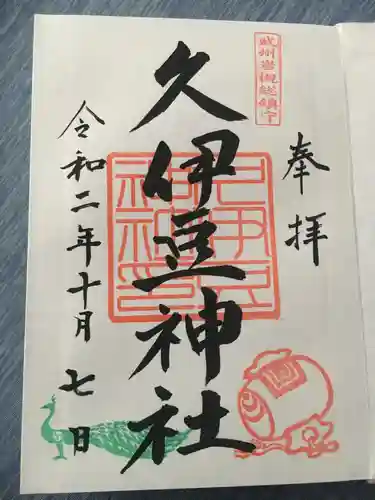 武州岩槻総鎮守
奉拝
久伊豆神社
令和二年十月七日